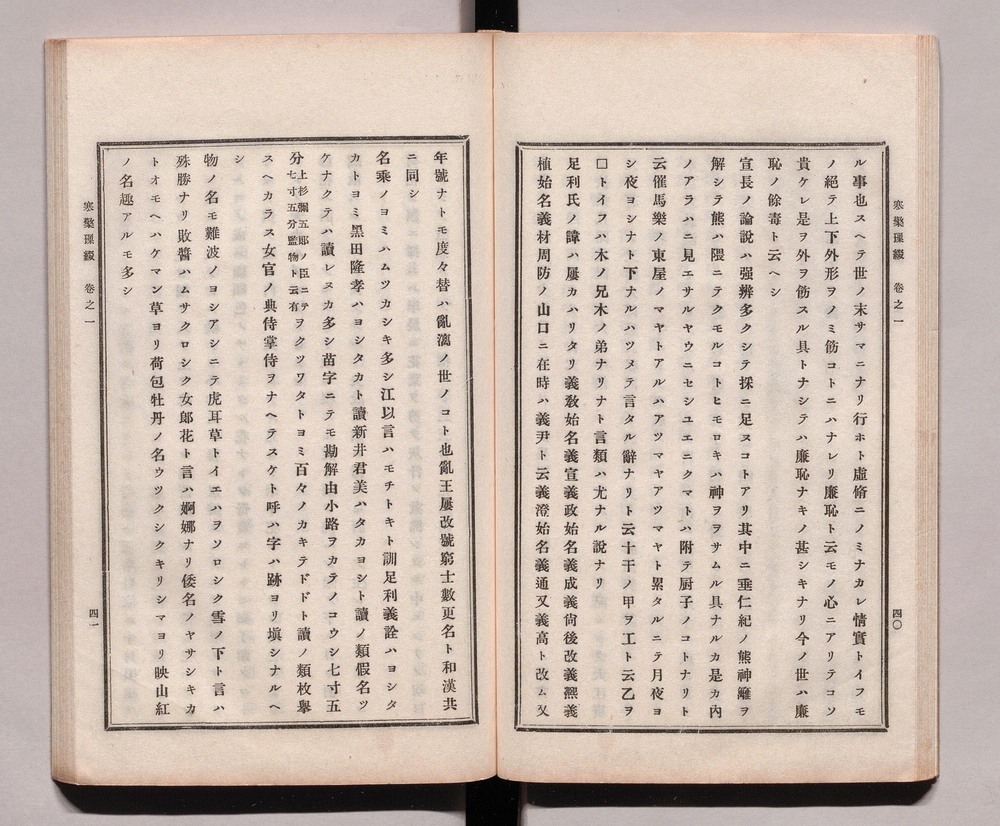 寒檠璅綴　卷之一
四〇
ル事也スヘテ世ノ末サマニナリ行ホト虛脩ニノミナカレ情實トイフモ
ノ絕テ上下外形ヲノミ飭コトニハナレリ廉恥ト云モノ心ニアリテコソ
貴ケレ是ヲ外ヲ飭スル具トナシテハ廉恥ナキノ甚シキナリ今ノ世ハ廉
恥ノ餘毒ト云ヘシ
宣長ノ論說ハ强辨多クシテ採ニ足ヌコトアリ其中ニ垂仁紀ノ熊神籬ヲ
解シテ熊ハ隈ニテクモルコトヒモロキハ神ヲヲサムル具ナルカ是カ內
ノアラハニ見エサルヤウニセシユエニクマトハ附テ厨子ノコトナリト
云催馬樂ノ東屋ノマヤトアルハアツマヤアツマヤト累タルニテ月夜ヨ
シ夜ヨシナト下ナルハツメテ言タル辭ナリト云十干ノ甲ヲ工ト云乙ヲ
□トイフハ木ノ兄木ノ弟ナリナト言類ハ尤ナル說ナリ
足利氏ノ諱ハ屢カハリタリ義敎始名義宣義政始名義成義尙後改義凞義
植始名義材周防ノ山口ニ在時ハ義尹ト云義澄始名義通又義高ト改ム又
年號ナトモ度々替ハ亂漓ノ世ノコト也亂王屢改號窮士數更名ト和漢共
ニ同シ
名乘ノヨミハムツカシキ多シ江以言ハモチトキト訓足利義詮ハヨシタ
カトヨミ黑田隆孝ハヨシタカト讀新井君美ハタカヨシト讀ノ類假名ツ
ケナクテハ讀レヌカ多シ苗字ニテモ勘解由小路ヲカテノコウシ七寸五
分上杉彌五郞ノ臣ニテ七寸五分監物ト云有ヲクツワタトヨミ百々ノカキテドドト讀ノ類枚擧
スヘカラス女官ノ典侍掌侍ヲナヘテスケト呼ハ字ハ跡ヨリ塡シナルヘ
シ
物ノ名モ難波ノヨシアシニテ虎耳草トイエハヲソロシク雪ノ下ト言ハ
殊勝ナリ敗醬ハムサクロシク女郞花ト言ハ婀娜ナリ倭名ノヤサシキカ
トオモヘハケマン草ヨリ荷包牡丹ノ名ウツクシクキリシマヨリ映山紅
ノ名趣アルモ多シ
寒檠璅綴　卷之一
四一